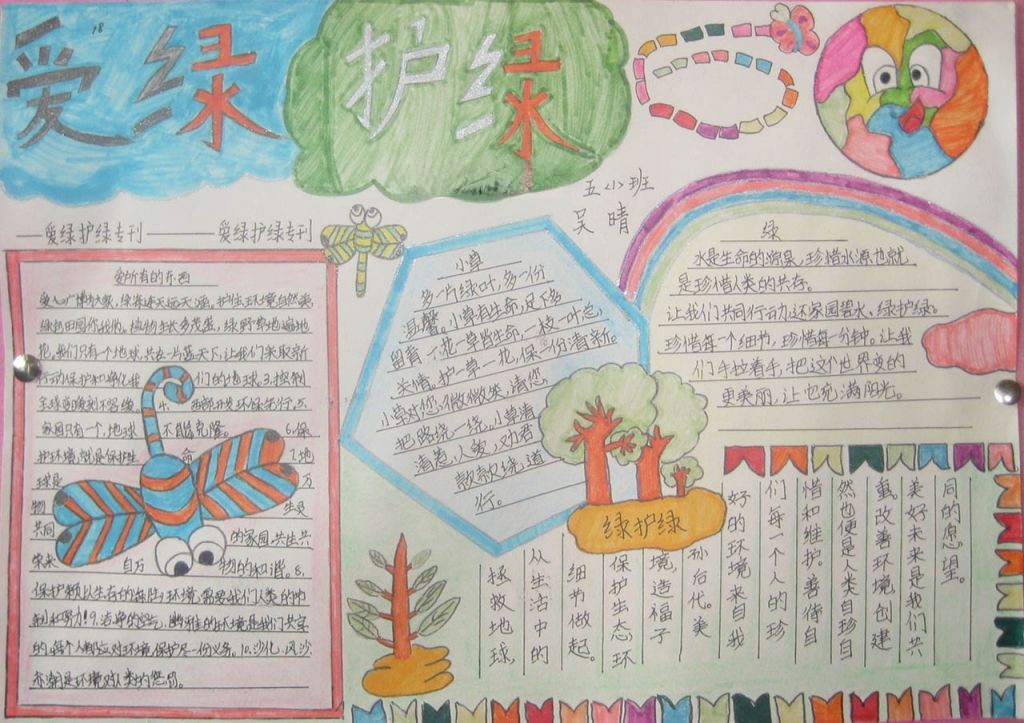 18
爱绿
护绿
五小班
吴晴
爱绿护绿专刊
爱绿护绿专刊
爱所有的东西
花,我们只有一个地球,共在一片蓝天下,让我们采取新
行动保护和净化我们的地球。3.控制
家园只有一个,地球不能克隆。6.保
护环境,就是保护生命7.地
球是万
物生灵
共同的家园,共生共
荣来自万物的和谐。8.
保护赖以生存的每片环境,需要我们人类的冲
制和努力!9.洁净的空气,幽雅的环境是我们共享
的,每个人都应对环境保护尽一份义务。10.沙化、风沙
小草
多一片绿叶,多一份
温馨。小草有生命,足下多
留青,一花一草皆生命,一枝一叶总
关情。护一草一花,保一份清新。
小草对您微微笑,请您
把路绕一绕。小草清
清惹人爱,劝君
款款绕道
行。
绿护绿
绿
水是生命的源泉,珍惜水源也就
是珍惜人类的共存。
让我们共同行动,还家园碧水,绿护绿。
珍惜每个细节,珍惜每一分钟。让我
们手拉着手,把这个世界变的
更美丽,让它充满阳光。
拯救地球,
从生活中的
细节做起。
保护生态环
境,造福子
孙后代。美
好的环境来自我
们每一个人的珍
惜和维护。善待自
然也便是人类自珍自
重,改善环境创建
美好未来是我们共
同的愿望。